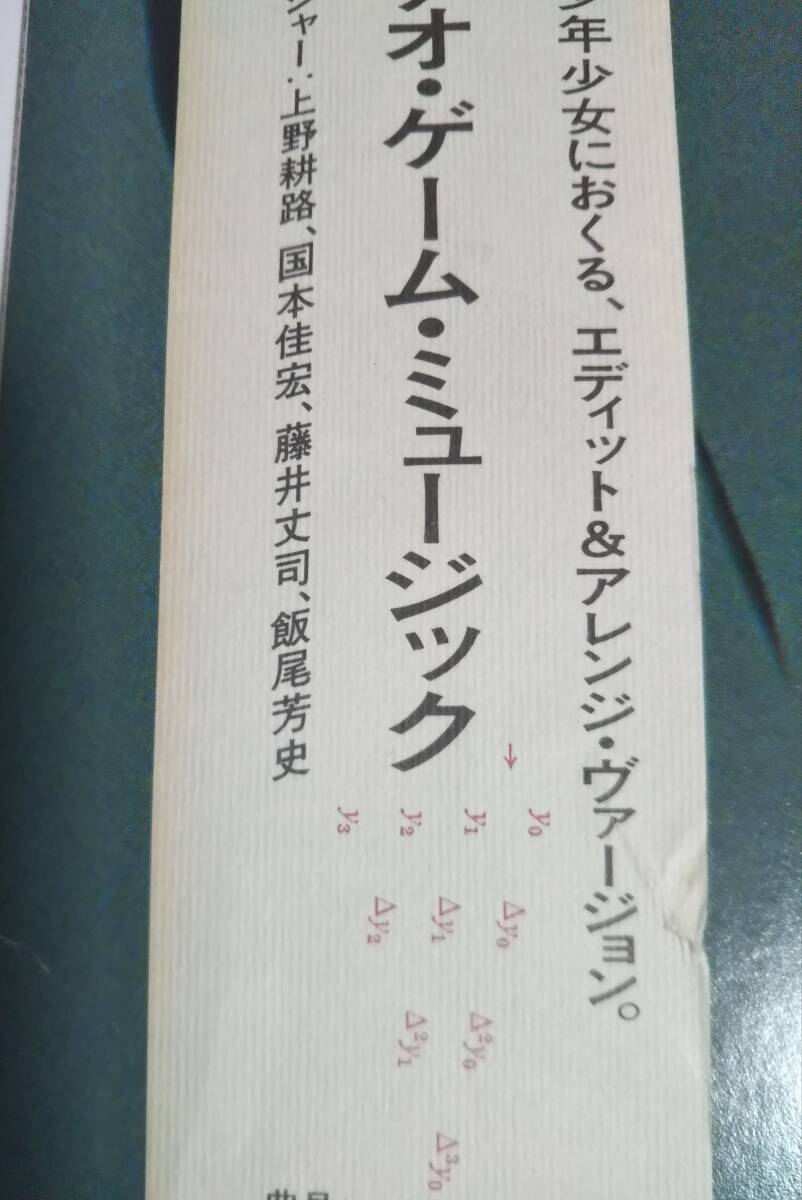 年少女におくる、エディット&アレンジ・ヴァージョン。
オ・ゲーム・ミュージック
ジャー:上野耕路、国本佳宏、藤井丈司、飯尾芳史
→
y₀ Δy₀ Δ²y₀ Δ³y₀
y₁ Δy₁ Δ²y₁
y₂ Δy₂
y₃